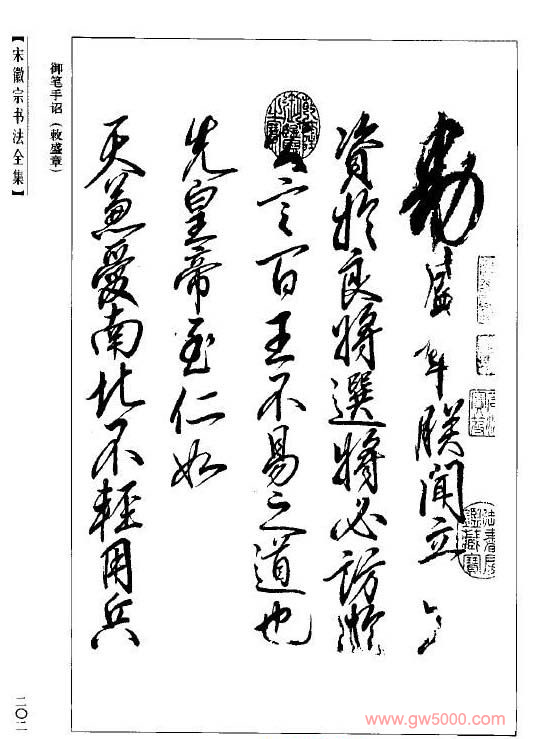 敕盛章朕闻立
資於良将選将必訪於
言百王不易之道也
先皇帝至仁如
天兼愛南北不輕用兵
御笔手诏（敕盛章）
【宋徽宗书法全集】
二〇二
www.gw5000.com